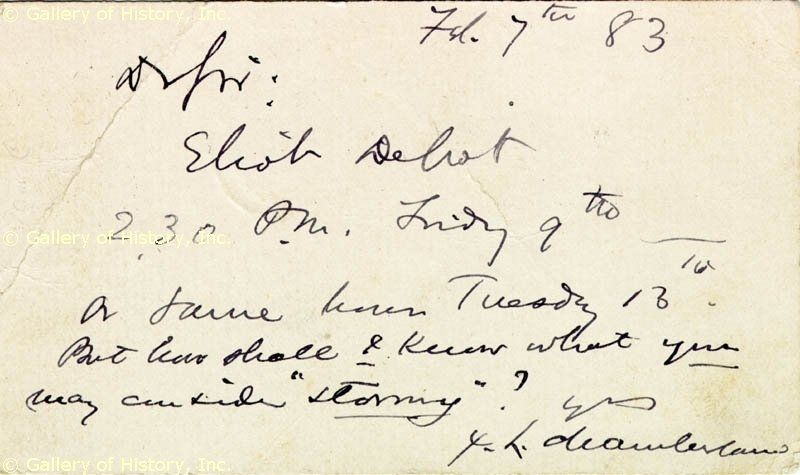 © Gallery of History, Inc.
Feb. 7th 83
Dr Sir:
Eliot Depot
© Gallery of History, Inc.
2.30 P.M. Friday 9th
or same hour Tuesday 13th.
But how shall I know what you
may consider "stormy"? yrs
J. L. Chamberlain
© Gallery of History, Inc.